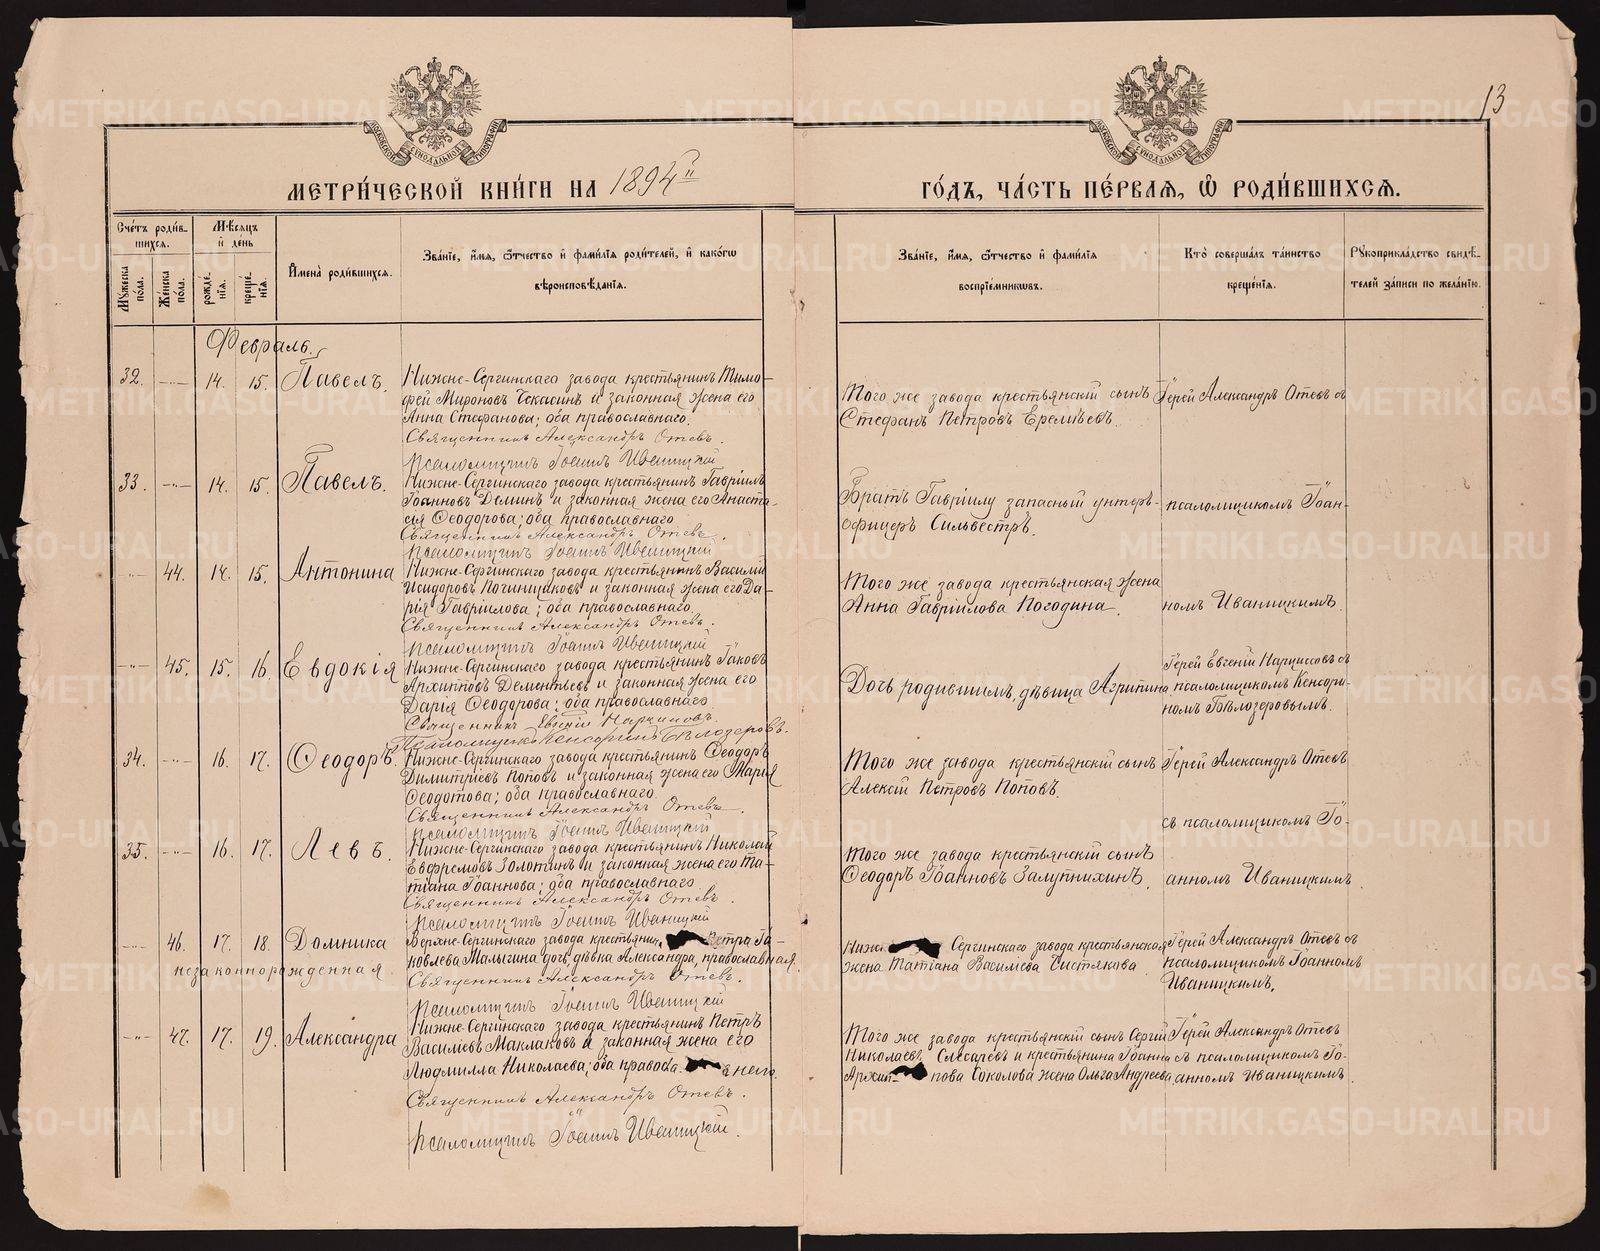 13
МОСКОВСКОЙ СУНОДАЛЬНОЙ ТИПОГРАФІИ
МОСКОВСКОЙ СУНОДАЛЬНОЙ ТИПОГРАФІИ
МЕТРИ́ЧЕСКОЙ КНИ́ГИ НА 1894й
ГО́ДЪ, ЧА́СТЬ ПЕ́РВАЯ, Ѡ РОДИ́ВШИХСЯ.
Сче́тъ роди́вшихся.
Му́жеска по́ла.
Же́нска по́ла.
Мѣ́сяцъ и де́нь
рожде́нїя.
креще́нїя.
Имена̀ роди́вшихся.
Зва́нїе, и́мя, ѻ́тчество и фами́лїя роди́телей, и како́гѡ
вѣроисповѣ́данїя.
Зва́нїе, и́мя, ѻ́тчество и фами́лїя
воспрїе́мникѡвъ.
Кто̀ соверша́лъ та́инство
креще́нїя.
Рꙋкоприкла́дство свидѣ́-
телей за́писи по жела́нїю.
Февраль.
32. —„— 14. 15. Павелъ.
Нижне-Сергинскаго завода крестьянинъ Тимо-
фей Мироновъ Чекасинъ и законная жена его
Анна Стефанова; оба православнаго.
Священникъ Александръ Отевъ.
Псаломщикъ Іоаннъ Иваницкій
Того же завода крестьянскій сынъ
Стефанъ Петровъ Еремѣевъ.
Іерей Александръ Отевъ съ
33. —„— 14. 15. Павелъ.
Нижне-Сергинскаго завода крестьянинъ Гавріилъ
Іоанновъ Деминъ и законная жена его Анаста-
сія Ѳеодорова; оба православнаго
Священникъ Александръ Отевъ.
Псаломщикъ Іоаннъ Иваницкій
Братъ Гавріилу запасный унтеръ-
офицеръ Сильвестръ.
псаломщикомъ Іоан-
—„— 44. 14. 15. Антонина
Нижне-Сергинскаго завода крестьянинъ Василій
Исидоровъ Починщиковъ и законная жена его Да-
рія Гавріилова; оба православнаго.
Священникъ Александръ Отевъ.
Псаломщикъ Іоаннъ Иваницкій
Того же завода крестьянская жена
Анна Гавріилова Погодина.
номъ Иваницкимъ.
—„— 45. 15. 16. Евдокія
Нижне-Сергинскаго завода крестьянинъ Іаковъ
Архиповъ Дементьевъ и законная жена его
Дарія Ѳеодорова; оба православнаго.
Священникъ Евгеній Нарциссовъ.
Псаломщикъ Кенсоринъ Бѣлозеровъ.
Дочь родившимъ, дѣвица Агрипина
Іерей Евгеній Нарциссовъ съ
псаломщикомъ Кенсори-
номъ Бѣлозеровымъ.
34. —„— 16. 17. Ѳеодоръ.
Нижне-Сергинскаго завода крестьянинъ Ѳеодоръ
Димитріевъ Поповъ и законная жена его Марія
Ѳеодотова; оба православнаго.
Священникъ Александръ Отевъ.
Псаломщикъ Іоаннъ Иваницкій
Того же завода крестьянскій сынъ
Алексій Петровъ Поповъ.
Іерей Александръ Отевъ
съ псаломщикомъ Іо-
35. —„— 16. 17. Левъ.
Нижне-Сергинскаго завода крестьянинъ Николай
Евфремовъ Золотинъ и законная жена его Та-
тіана Іоаннова; оба православнаго
Священникъ Александръ Отевъ.
Псаломщикъ Іоаннъ Иваницкій
Того же завода крестьянскій сынъ
Ѳеодоръ Іоанновъ Залупихинъ.
анномъ Иваницкимъ.
—„— 46. 17. 18. Домника
незаконнорожденная.
Верхне-Сергинскаго завода крестьянина Петра Іа-
ковлева Малыгина дочь дѣвка Александра, православная.
Священникъ Александръ Отевъ.
Псаломщикъ Іоаннъ Иваницкій
Нижне Сергинскаго завода крестьянская
жена Татіана Василіева Чистякова.
Іерей Александръ Отевъ съ
псаломщикомъ Іоанномъ
Иваницкимъ.
—„— 47. 17. 19. Александра
Нижне-Сергинскаго завода крестьянинъ Петръ
Василіевъ Маклаковъ и законная жена его
Людмилла Николаева; оба православнаго.
Священникъ Александръ Отевъ.
Псаломщикъ Іоаннъ Иваницкій.
Того же завода крестьянскій сынъ Сергій
Николаевъ Слесаревъ и крестьянина Іоанна
Архипова Соколова жена Ольга Андреева
Іерей Александръ Отевъ
съ псаломщикомъ Іо-
анномъ Иваницкимъ.
METRIKI.GASO-URAL.RU